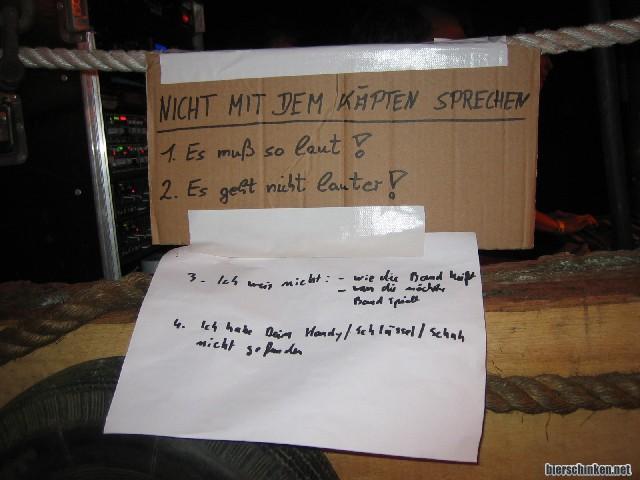 NICHT MIT DEM KÄPTEN SPRECHEN
1. Es muß so laut!
2. Es geht nicht lauter!
3. Ich weis nicht: - wie die Band heißt
- wan die nächste
Band spielt
4. Ich habe Dein Handy/Schlüssel/Schuh
nicht gefunden
bierschinken.net